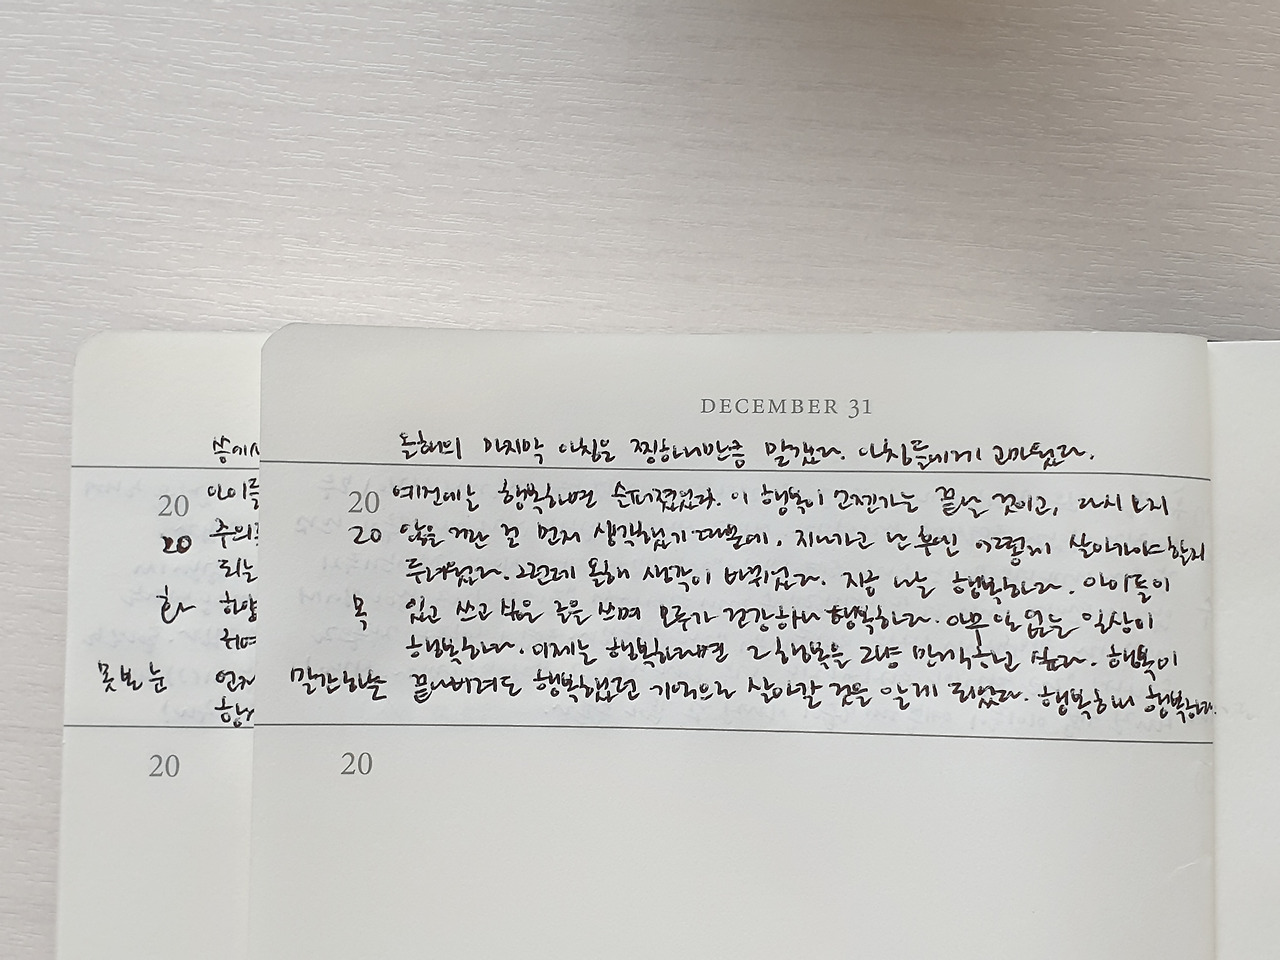 DECEMBER 31
올해의 마지막 아침은 찡하리만큼 말갰다. 아침들에게 고마웠다.
20 예전에는 행복하면 슬퍼졌었다. 이 행복이 언젠가는 끝날 것이고, 다시 오지
20 않을 거란 걸 먼저 생각했기 때문에. 지나가고 난 후엔 어떻게 살아가야할지
두려웠다. 그런데 올해 생각이 바뀌었다. 지금 나는 행복하다. 아이들이
목 있고 쓰고 싶은 글을 쓰며 모두가 건강하니 행복하다. 아무 일 없는 일상이
행복하다. 이제는 행복하다면 그 행복을 그냥 만끽하고 싶다. 행복이
말간하늘 끝나버려도 행복했던 기억으로 살아갈 것을 알게 되었다. 행복하니 행복하다.
20
20
아이들
20
되는
화 하얗
못 본 눈 언지
20